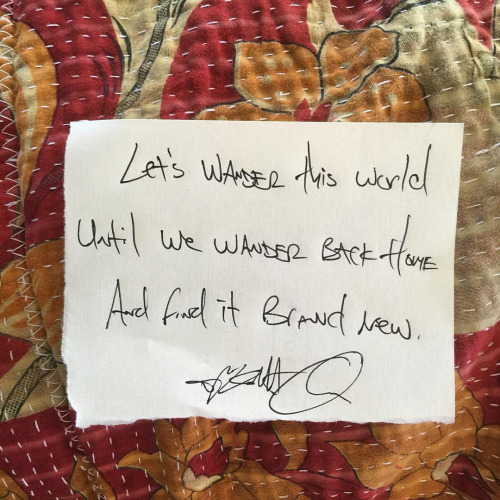 Let's WANDER this world
Until we WANDER BACK Home
And find it Brand New.